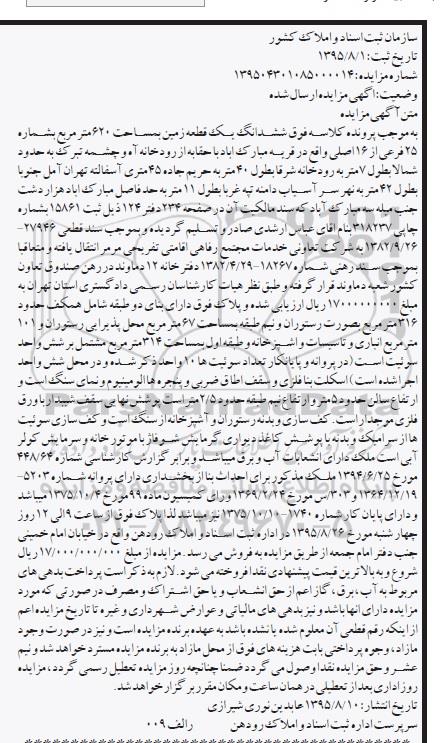 سازمان ثبت اسناد و املاک کشور
تاریخ ثبت: ۱۳۹۵/۸/۱
شماره مزایده: ۱۳۹۵۰۴۳۰۱۰۸۵۰۰۰۰۱۴
وضعیت: آگهی مزایده ارسال شده
متن آگهی مزایده
به موجب پرونده کلاسه فوق ششدانگ یک قطعه زمین بمساحت ۶۲۰ متر مربع بشماره
۲۵ فرعی از ۱۶ اصلی واقع در قریه مبارک اباد با حقابه از رودخانه آه و چشمه تبرک به حدود
شمالا بطول ۷ متر به رودخانه شرقا بطول ۴۰ متر به حریم جاده ۴۵ متری آسفالته تهران آمل جنوبا
بطول ۴۲ متر به نهر سر آسیاب دامنه تپه غربا بطول ۱۱ متر به حد فاصل مبارک اباد هزار دشت
جنب میله سه مبارک آباد که سند مالکیت آن در صفحه ۲۳۴ دفتر ۱۲۴ ذیل ثبت ۱۵۸۶۱ بشماره
چاپی ۳۱۸۲۳۷ بنام اقای عباس ارشدی صادر و تسلیم گردیده و بموجب سند قطعی ۲۷۹۴۶-
۱۳۸۲/۹/۲۶ به شرکت تعاونی خدمات مجتمع رفاهی اقامتی تفریحی مرمر انتقال یافته و متعاقبا
بموجب سند رهنی شماره ۱۸۲۶۷-۱۳۸۲/۴/۲۹ دفتر خانه ۱۲ دماوند در رهن صندوق تعاون
کشور شعبه دماوند قرار گرفته و طبق نظر هیات کارشناسان رسمی دادگستری استان تهران به
مبلغ ۱۷۰۰۰۰۰۰۰۰۰ ریال ارزیابی شده و پلاک فوق دارای بنای دو طبقه شامل همکف حدود
۳۱۶ متر مربع بصورت رستوران و نیم طبقه بمساحت ۶۷ متر مربع محل پذیرایی رستوران و ۱۰۱
متر مربع انباری و تاسیسات و اشپزخانه و طبقه اول بمساحت ۳۱۴ متر مربع مشتمل بر شش واحد
سوئیت است (در پروانه و پایانکار تعداد سوئیت ها ۱۰ واحد ذکر شده و در محل شش واحد
اجرا شده است) اسکلت بنا فلزی و سقف اطاق ضربی و پنجره ها الومینیوم و نمای سنگ است و
ارتفاع سالن حدود ۵ متر و ارتفاع نیم طبقه حدود ۲/۵ متر است پوشش نهایی سقف شیبدار با ورق
فلزی موجدار است. کف سازی و بدنه رستوران و آشپزخانه از سنگ است و کف سازی سوئیت
ها از سرامیک و بدنه با پوشش کاغذ دیواری گرمایش شوفاژ با موتورخانه و سرمایش کولر
آبی است ملک دارای انشعابات آب و برق میباشد و برابر گزارش کارشناسی شماره ۴۴۸/۶۴
مورخ ۱۳۹۴/۶/۲۵ ملک مذکور برای احداث بنا از بخشداری دارای پروانه شماره ۵۲۰۳-
۱۳۶۴/۱۲/۱۹ و ۳۰۳/س مورخ ۱۳۶۹/۲/۲۴ و رای کمیسیون ماده ۹۹ مورخ ۱۳۷۵/۱۰/۴ میباشد
و دارای پایان کار شماره ۱۷۴۰-۱۳۷۵/۱۰/۱۰ نیز میباشد لذا پلاک فوق از ساعت ۹ الی ۱۲ روز
چهار شنبه مورخ ۱۳۹۵/۸/۲۶ در اداره ثبت اسناد و املاک رودهن واقع در خیابان امام خمینی
جنب دفتر امام جمعه از طریق مزایده به فروش می رسد. مزایده از مبلغ ۱۷/۰۰۰/۰۰۰/۰۰۰ ریال
شروع و به بالاترین قیمت پیشنهادی نقدا فروخته می شود. لازم به ذکر است پرداخت بدهی های
مربوط به آب، برق، گاز اعم از حق انشعاب و یا حق اشتراک و مصرف در صورتی که مورد
مزایده دارای انها باشد و نیز بدهی های مالیاتی و عوارض شهرداری و غیره تا تاریخ مزایده اعم
از اینکه رقم قطعی آن معلوم شده یا نشده باشد به عهده برنده مزایده است و نیز در صورت وجود
مازاد، وجوه پرداختی بابت هزینه های فوق از محل مازاد به برنده مزایده مسترد خواهد شد و نیم
عشر و حق مزایده نقدا وصول می گردد ضمنا چنانچه روز مزایده تعطیل رسمی گردد، مزایده
روز اداری بعد از تعطیلی در همان ساعت و مکان مقرر برگزار خواهد شد.
تاریخ انتشار: ۱۳۹۵/۸/۱۰ عابدین نوری شیرازی
سرپرست اداره ثبت اسناد و املاک رودهن رالف ۰۰۹
ParsNamadData
۰۲۱-۸۸۳۴۹۶۷۰-۵